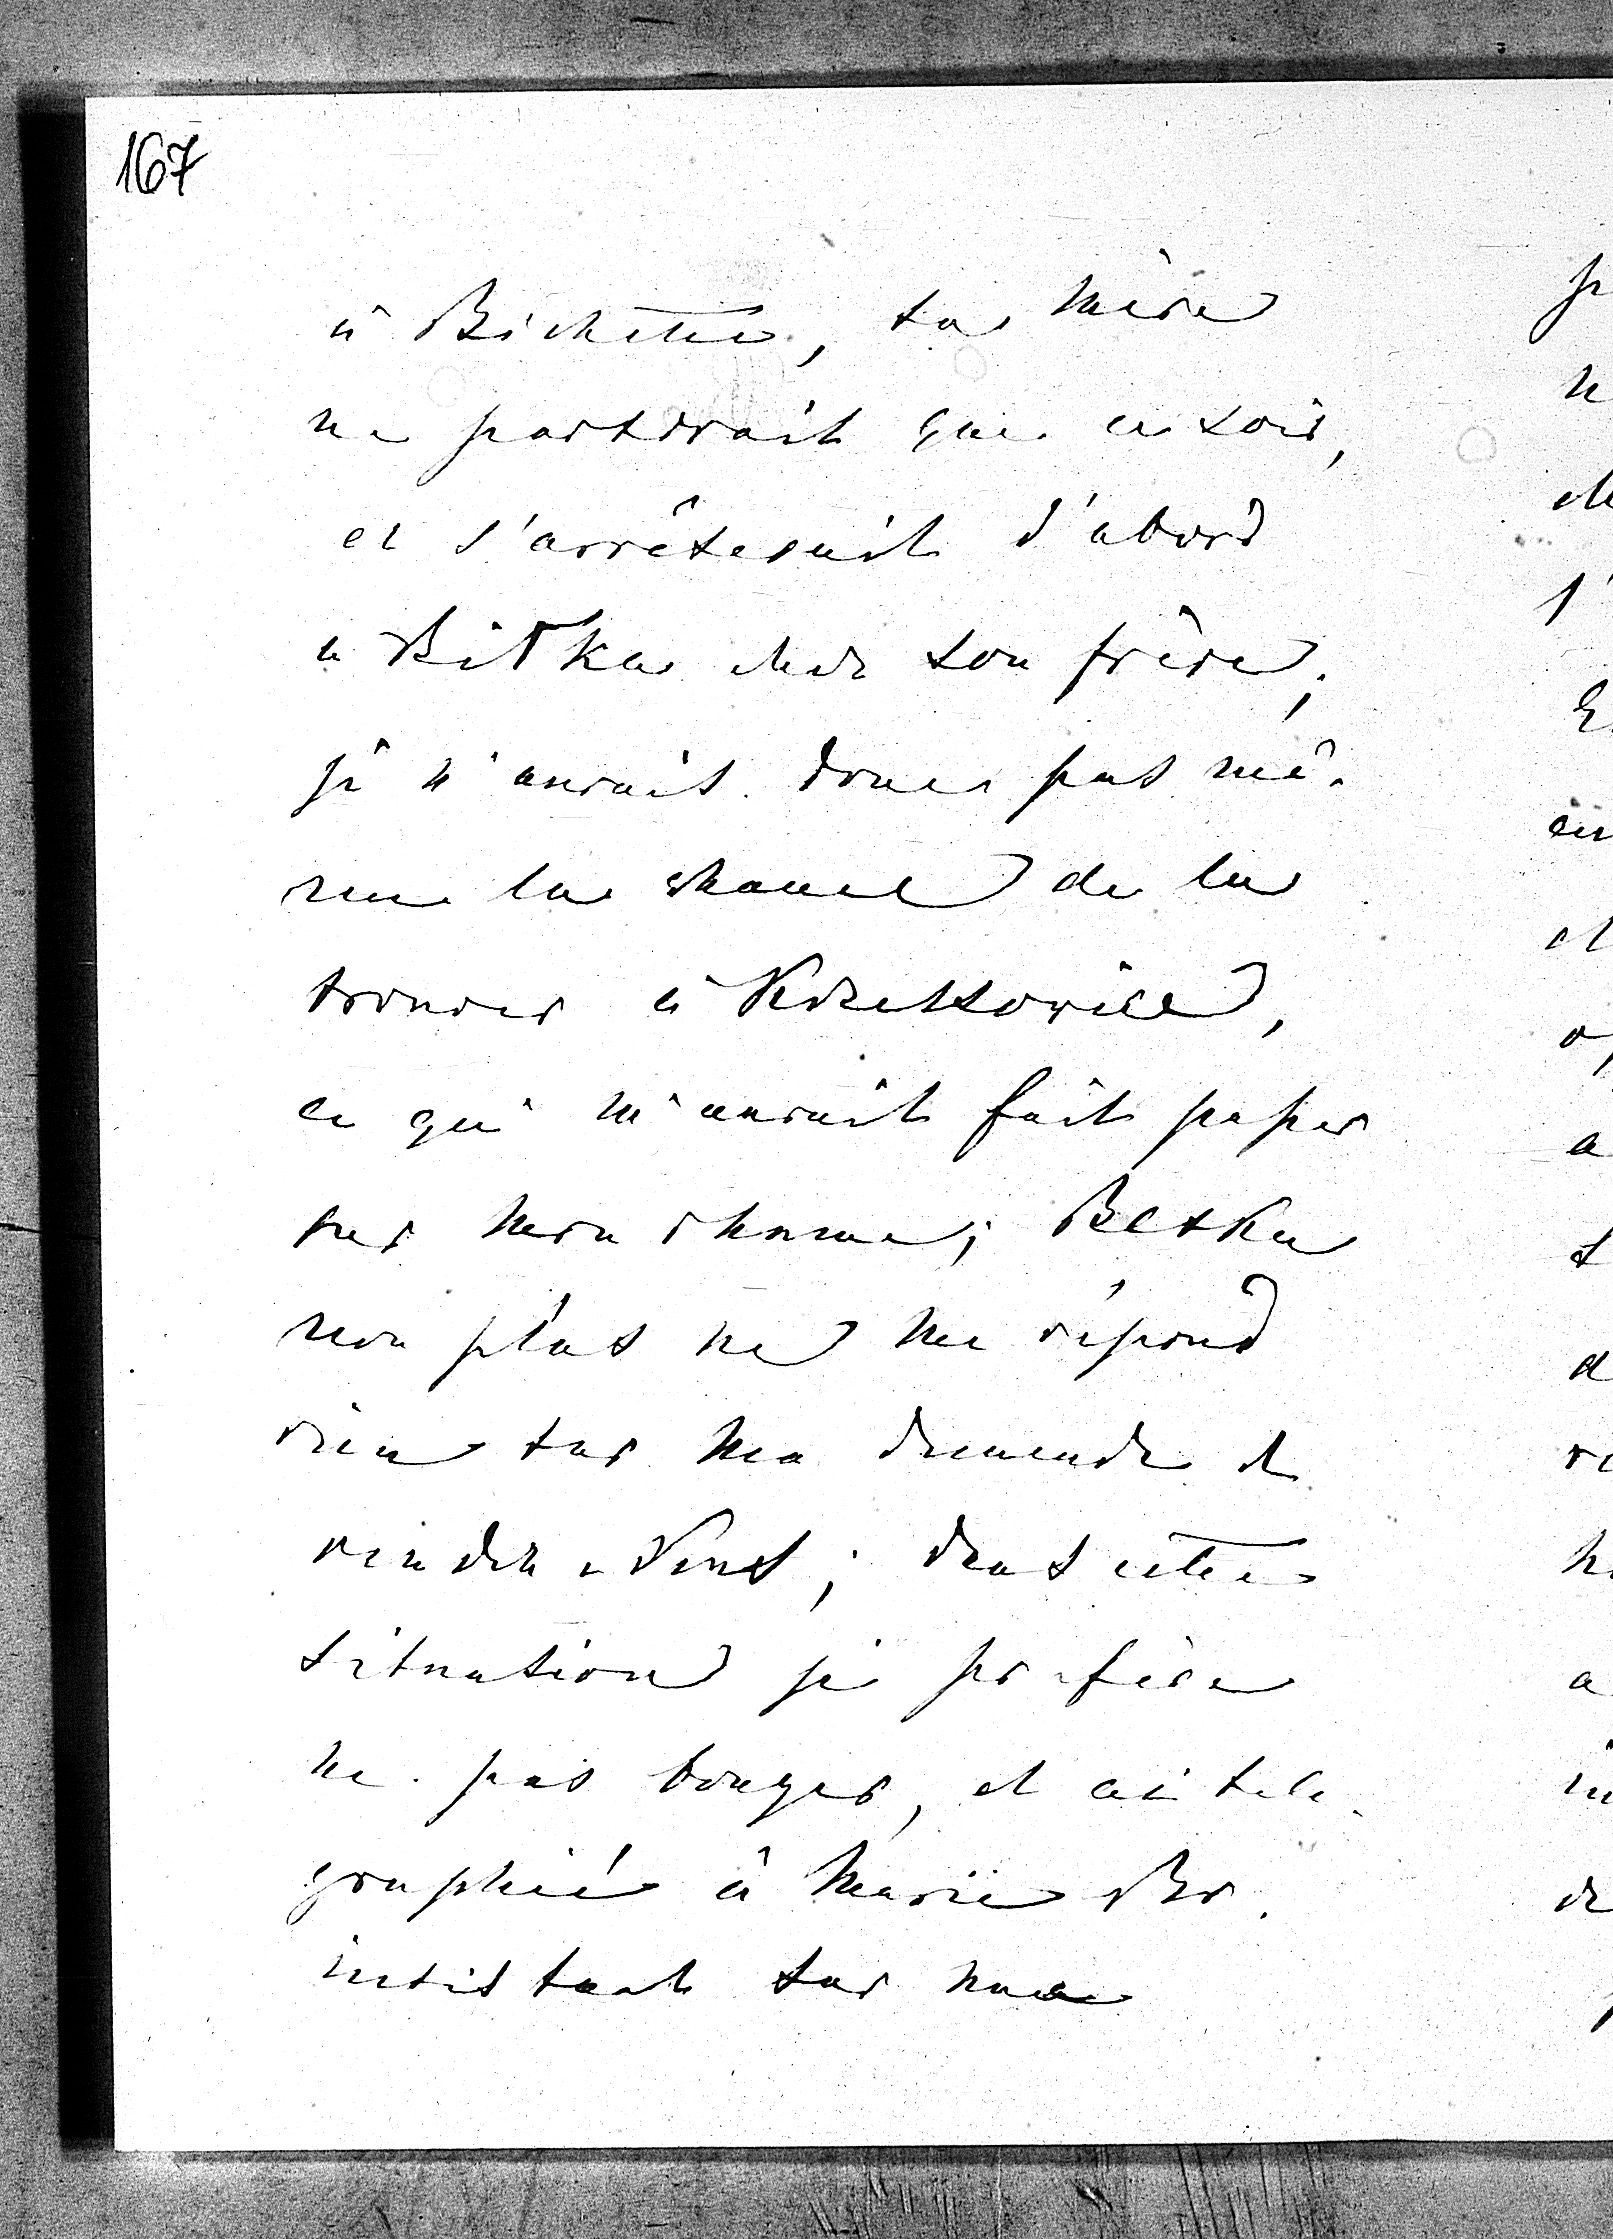 167
à Bichette, sa mère
ne partirait que ce soir,
et s'arrêterait d'abord
à Bitka chez son frère;
je n'aurais donc pas mê-
me la chance de la
trouver à Krzeszowice,
ce qui m'aurait fait passer
sur mon rhume; Betka
non plus ne me répond
rien sur ma demande de
rendez-vous; dans cette
situation je préfère
ne pas bouger, et ai télé-
graphié à Marie Br.
insistant sur ma